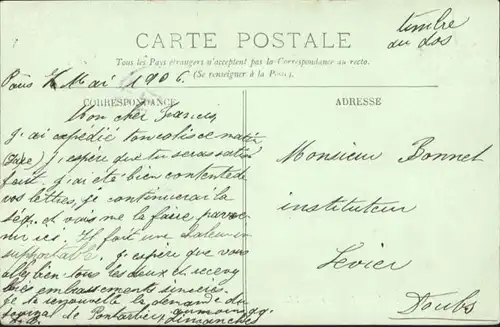 timbre
au dos
CARTE POSTALE
Tous les Pays étrangers n'acceptent pas la Correspondance au recto.
(Se renseigner à la Poste).
Paris Mai 1906.
CORRESPONDANCE
ADRESSE
Mon cher Francis
J'ai expédié ton colis ce matin
J'espère que tu seras satis
fait. J'ai été bien contente de
vos lettres, je continuerai la
et vais me la faire
ici. Il fait une chaleur in
supportable. J'espère que vous
allez bien tous les deux et recevez
mes embrassements sincères.
Je te renouvelle la demande du
journal de Pontarlier au moins
dimanches
Monsieur Bonnet
instituteur
Levier
Doubs